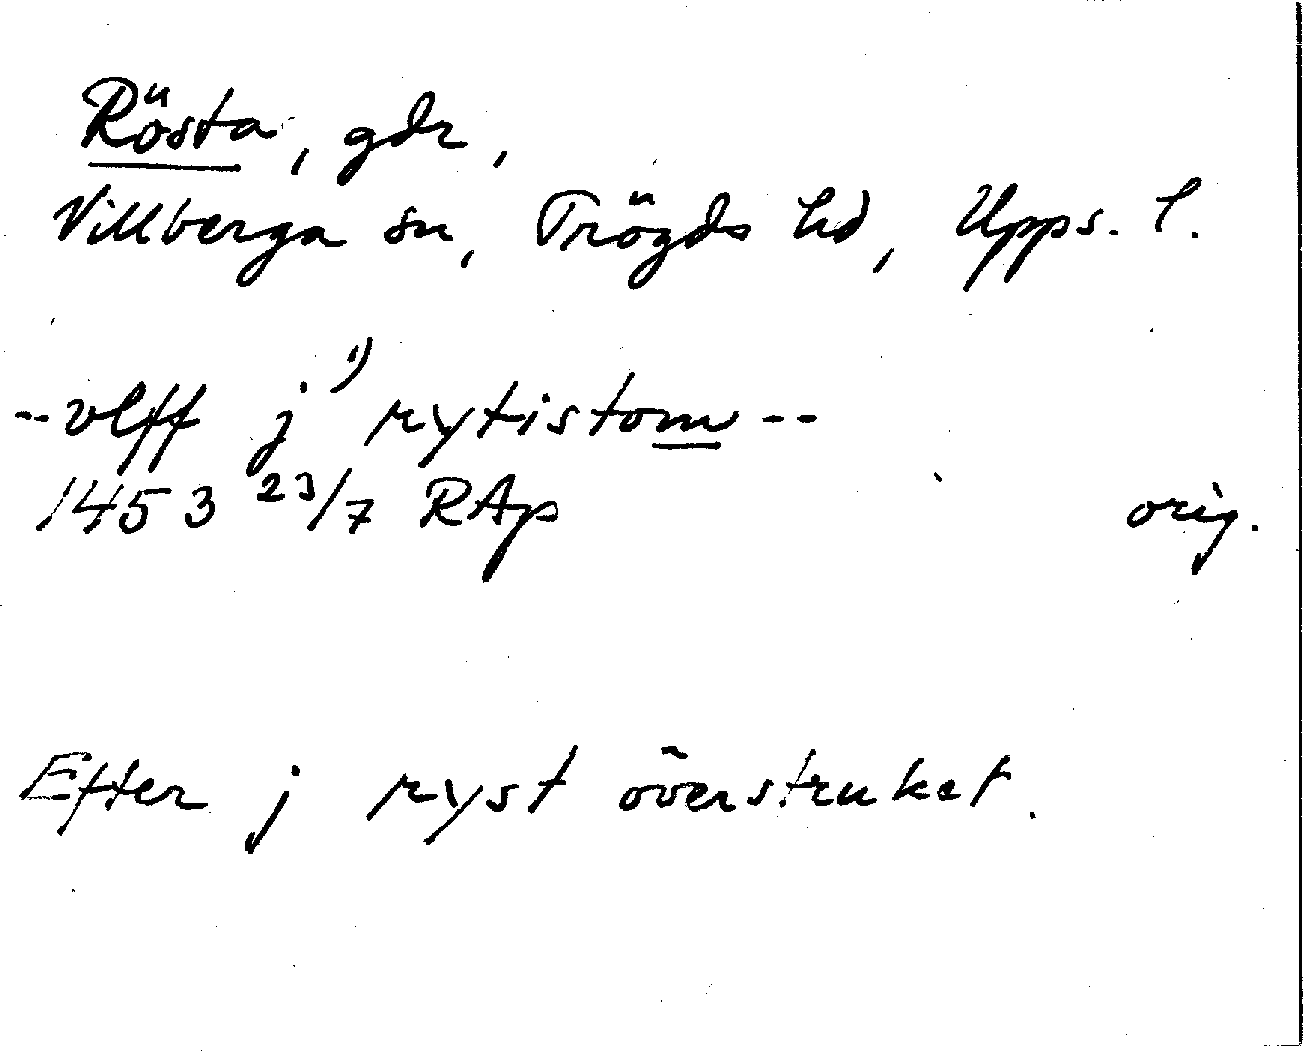 Rösta, gdr,
Villberga sn, Trögds hd, Upps. l.
--vlff j 1) rytistom --
1453 23/7 RAp orig.
Efter j ryst överstruket.